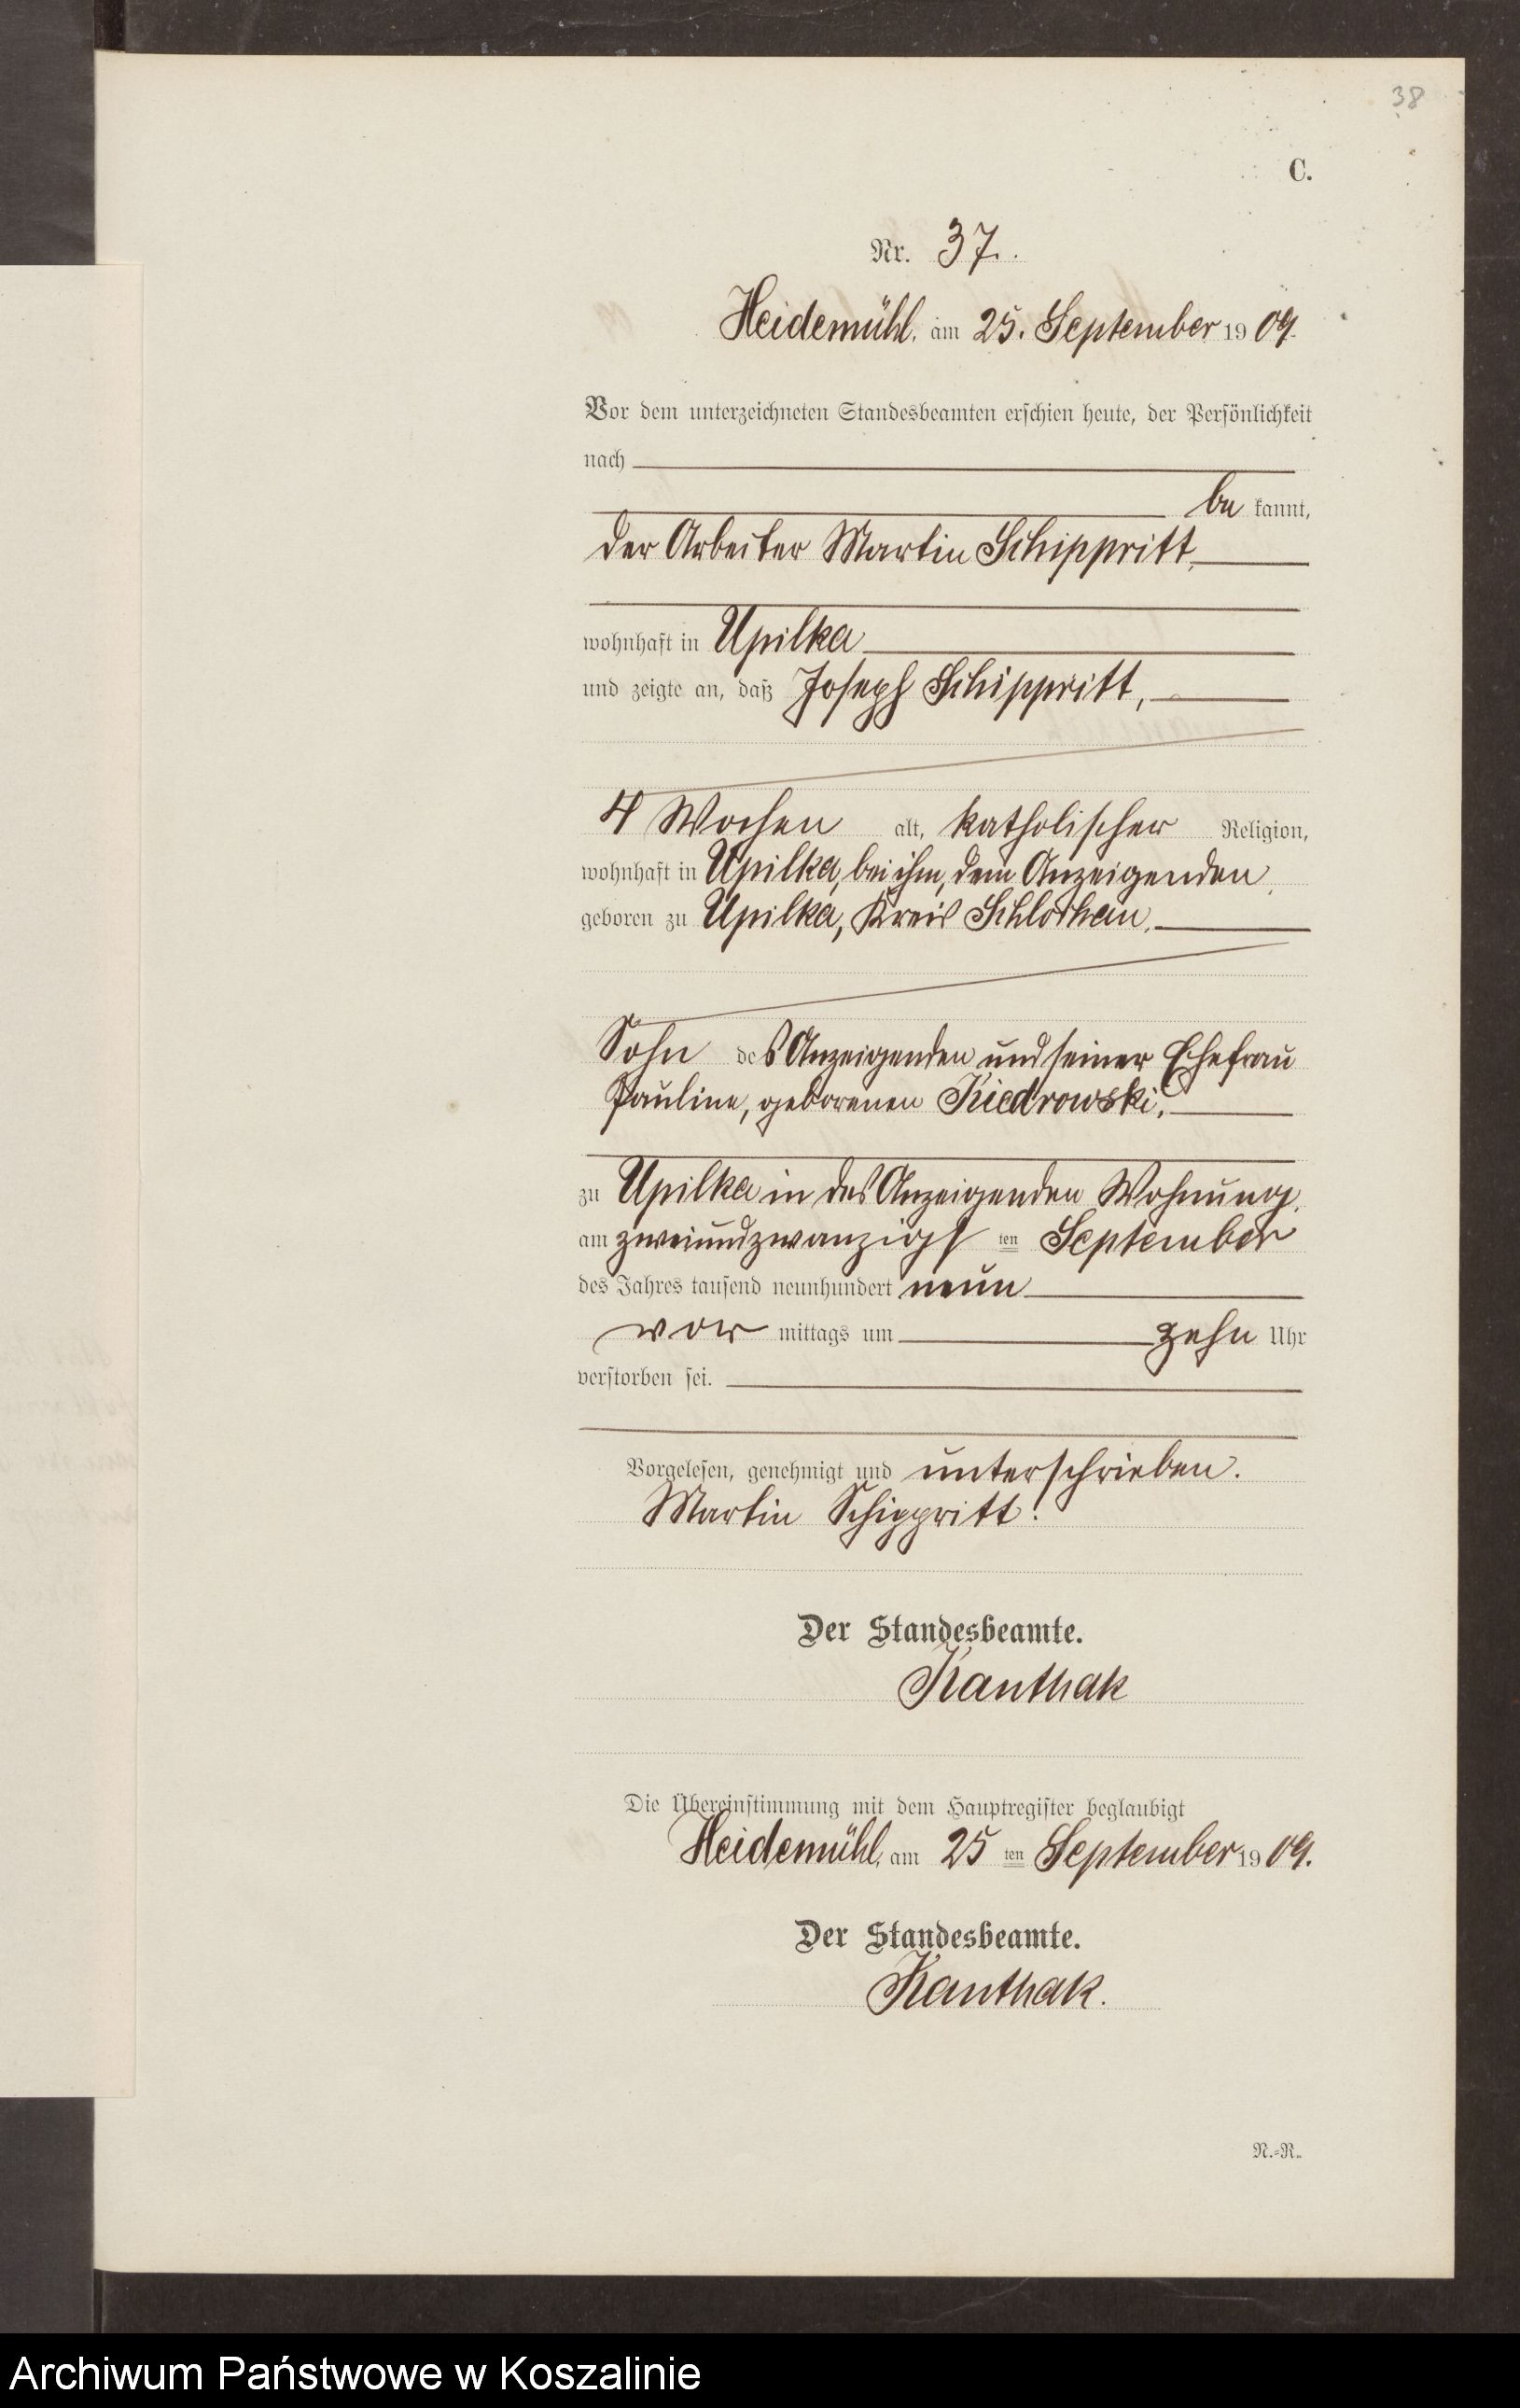 38
C.
Nr. 37.
Heidemühl, am 25. September 1909.
Vor dem unterzeichneten Standesbeamten erschien heute, der Persönlichkeit
nach
be kannt,
der Arbeiter Martin Schippritt,
wohnhaft in Upilka
und zeigte an, daß Joseph Schippritt,
4 Wochen alt, katholischer Religion,
wohnhaft in Upilka, bei ihm, dem Anzeigenden,
geboren zu Upilka, Kreis Schlochau,
Sohn des Anzeigenden und seiner Ehefrau
Pauline, geborenen Kiedrowski,
zu Upilka in des Anzeigenden Wohnung,
am zweiundzwanzigs ten September
des Jahres tausend neunhundert neun
vor mittags um zehn Uhr
verstorben sei.
Vorgelesen, genehmigt und unterschrieben.
Martin Schippritt.
Der Standesbeamte.
Kanthak
Die Übereinstimmung mit dem Hauptregister beglaubigt
Heidemühl, am 25 ten September 1909.
Der Standesbeamte.
Kanthak.
N.-R.
Archiwum Państwowe w Koszalinie